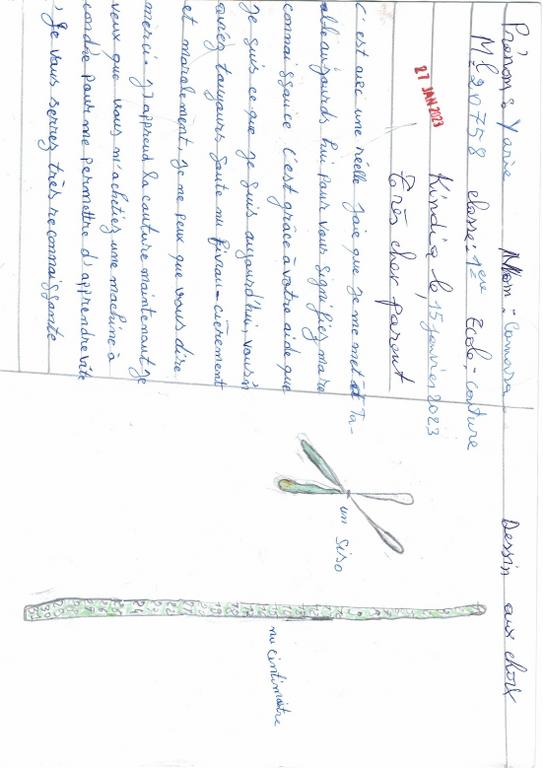 Prénom : Yarie Nom : Camara Dessin aux choix
M^le 20758 classe : 1^ere Ecole : couture
27 JAN 2023
Kindia le, 15 janvier 2023
très cher parent
C'est avec une réelle joie que je me met à Ta-
able aujourds hui pour vous signifiez ma re
connaissance C'est grâce à votre aide que
Je suis ce que je suis aujourd'hui, vous
aviez toujours Sauté nu finan-cièrement
et moralement. Je ne peux que vous dire
merci. J'apprend la couture maintenant je
veux que vous m'achetiez une machine à
coudre pour me permettre d'apprendre vite
Je vous serrez très reconnaissante
un Siso
nu centimaitre